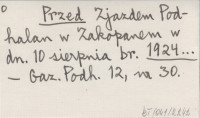 Przed Zjazdem Pod-
halan w Zakopanem w
dn. 10 sierpnia br. 1924...
— Gaz. Podh. 12, nr 30.